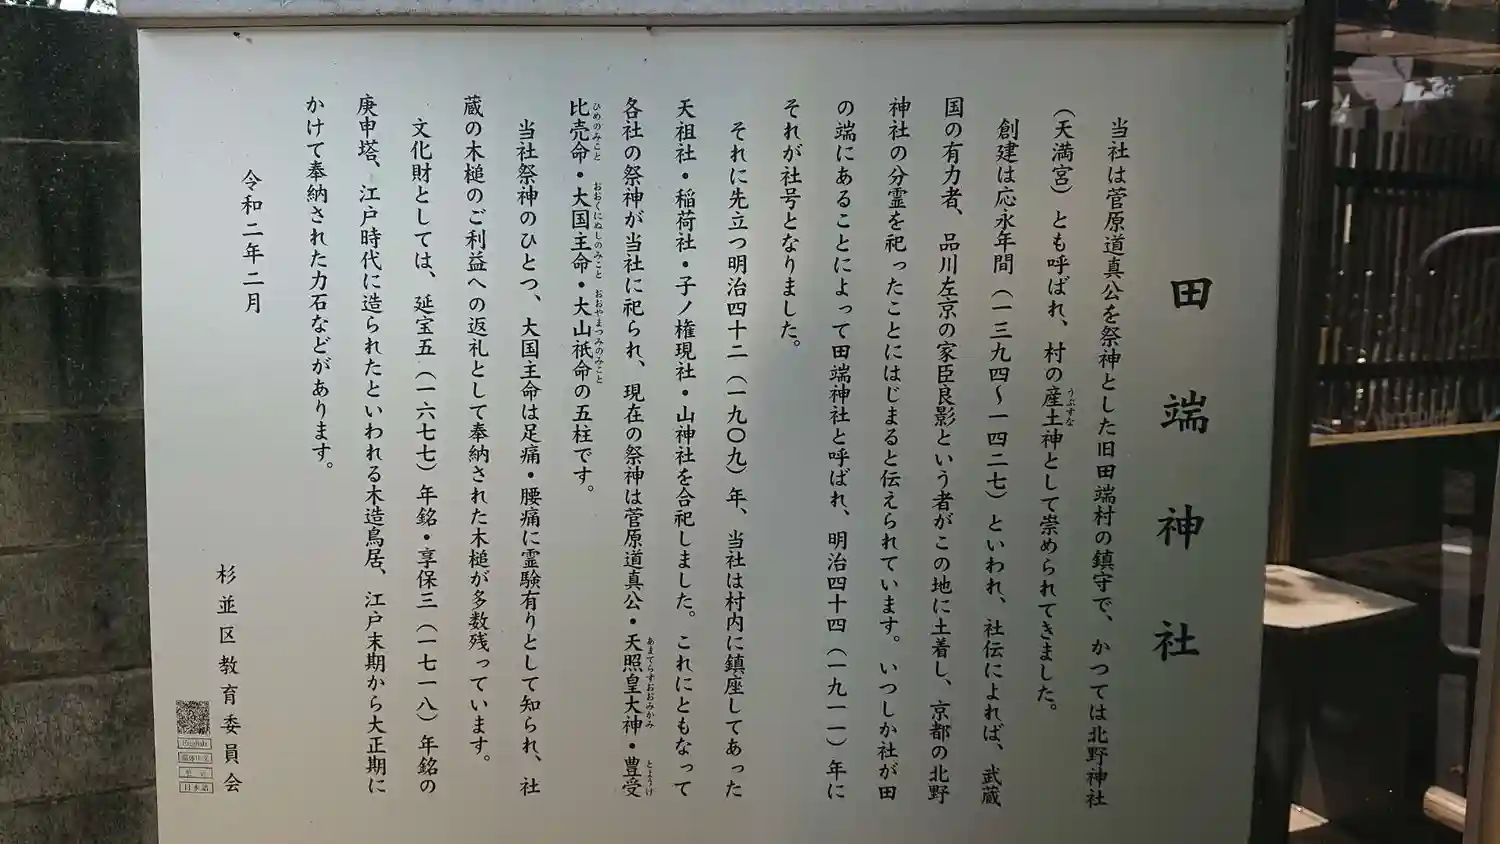 田端神社
当社は菅原道真公を祭神とした旧田端村の鎮守で、かつては北野神社
（天満宮）とも呼ばれ、村の産土神として崇められてきました。
うぶすな
創建は応永年間（一三九四～一四二七）といわれ、社伝によれば、武蔵
国の有力者、品川左京の家臣良影という者がこの地に土着し、京都の北野
神社の分霊を祀ったことにはじまると伝えられています。いつしか社が田
の端にあることによって田端神社と呼ばれ、明治四十四（一九一一）年に
それが社号となりました。
それに先立つ明治四十二（一九〇九）年、当社は村内に鎮座してあった
天祖社・稲荷社・子ノ権現社・山神社を合祀しました。これにともなって
各社の祭神が当社に祀られ、現在の祭神は菅原道真公・天照皇大神・豊受
あまてらすおおみかみ とようけ
比売命・大国主命・大山祇命の五柱です。
ひめのみこと おおくにぬしのみこと おおやまつみのみこと
当社祭神のひとつ、大国主命は足痛・腰痛に霊験有りとして知られ、社
蔵の木槌のご利益への返礼として奉納された木槌が多数残っています。
文化財としては、延宝五（一六七七）年銘・享保三（一七一八）年銘の
庚申塔、江戸時代に造られたといわれる木造鳥居、江戸末期から大正期に
かけて奉納された力石などがあります。
令和二年二月
杉並区教育委員会
English
日本語